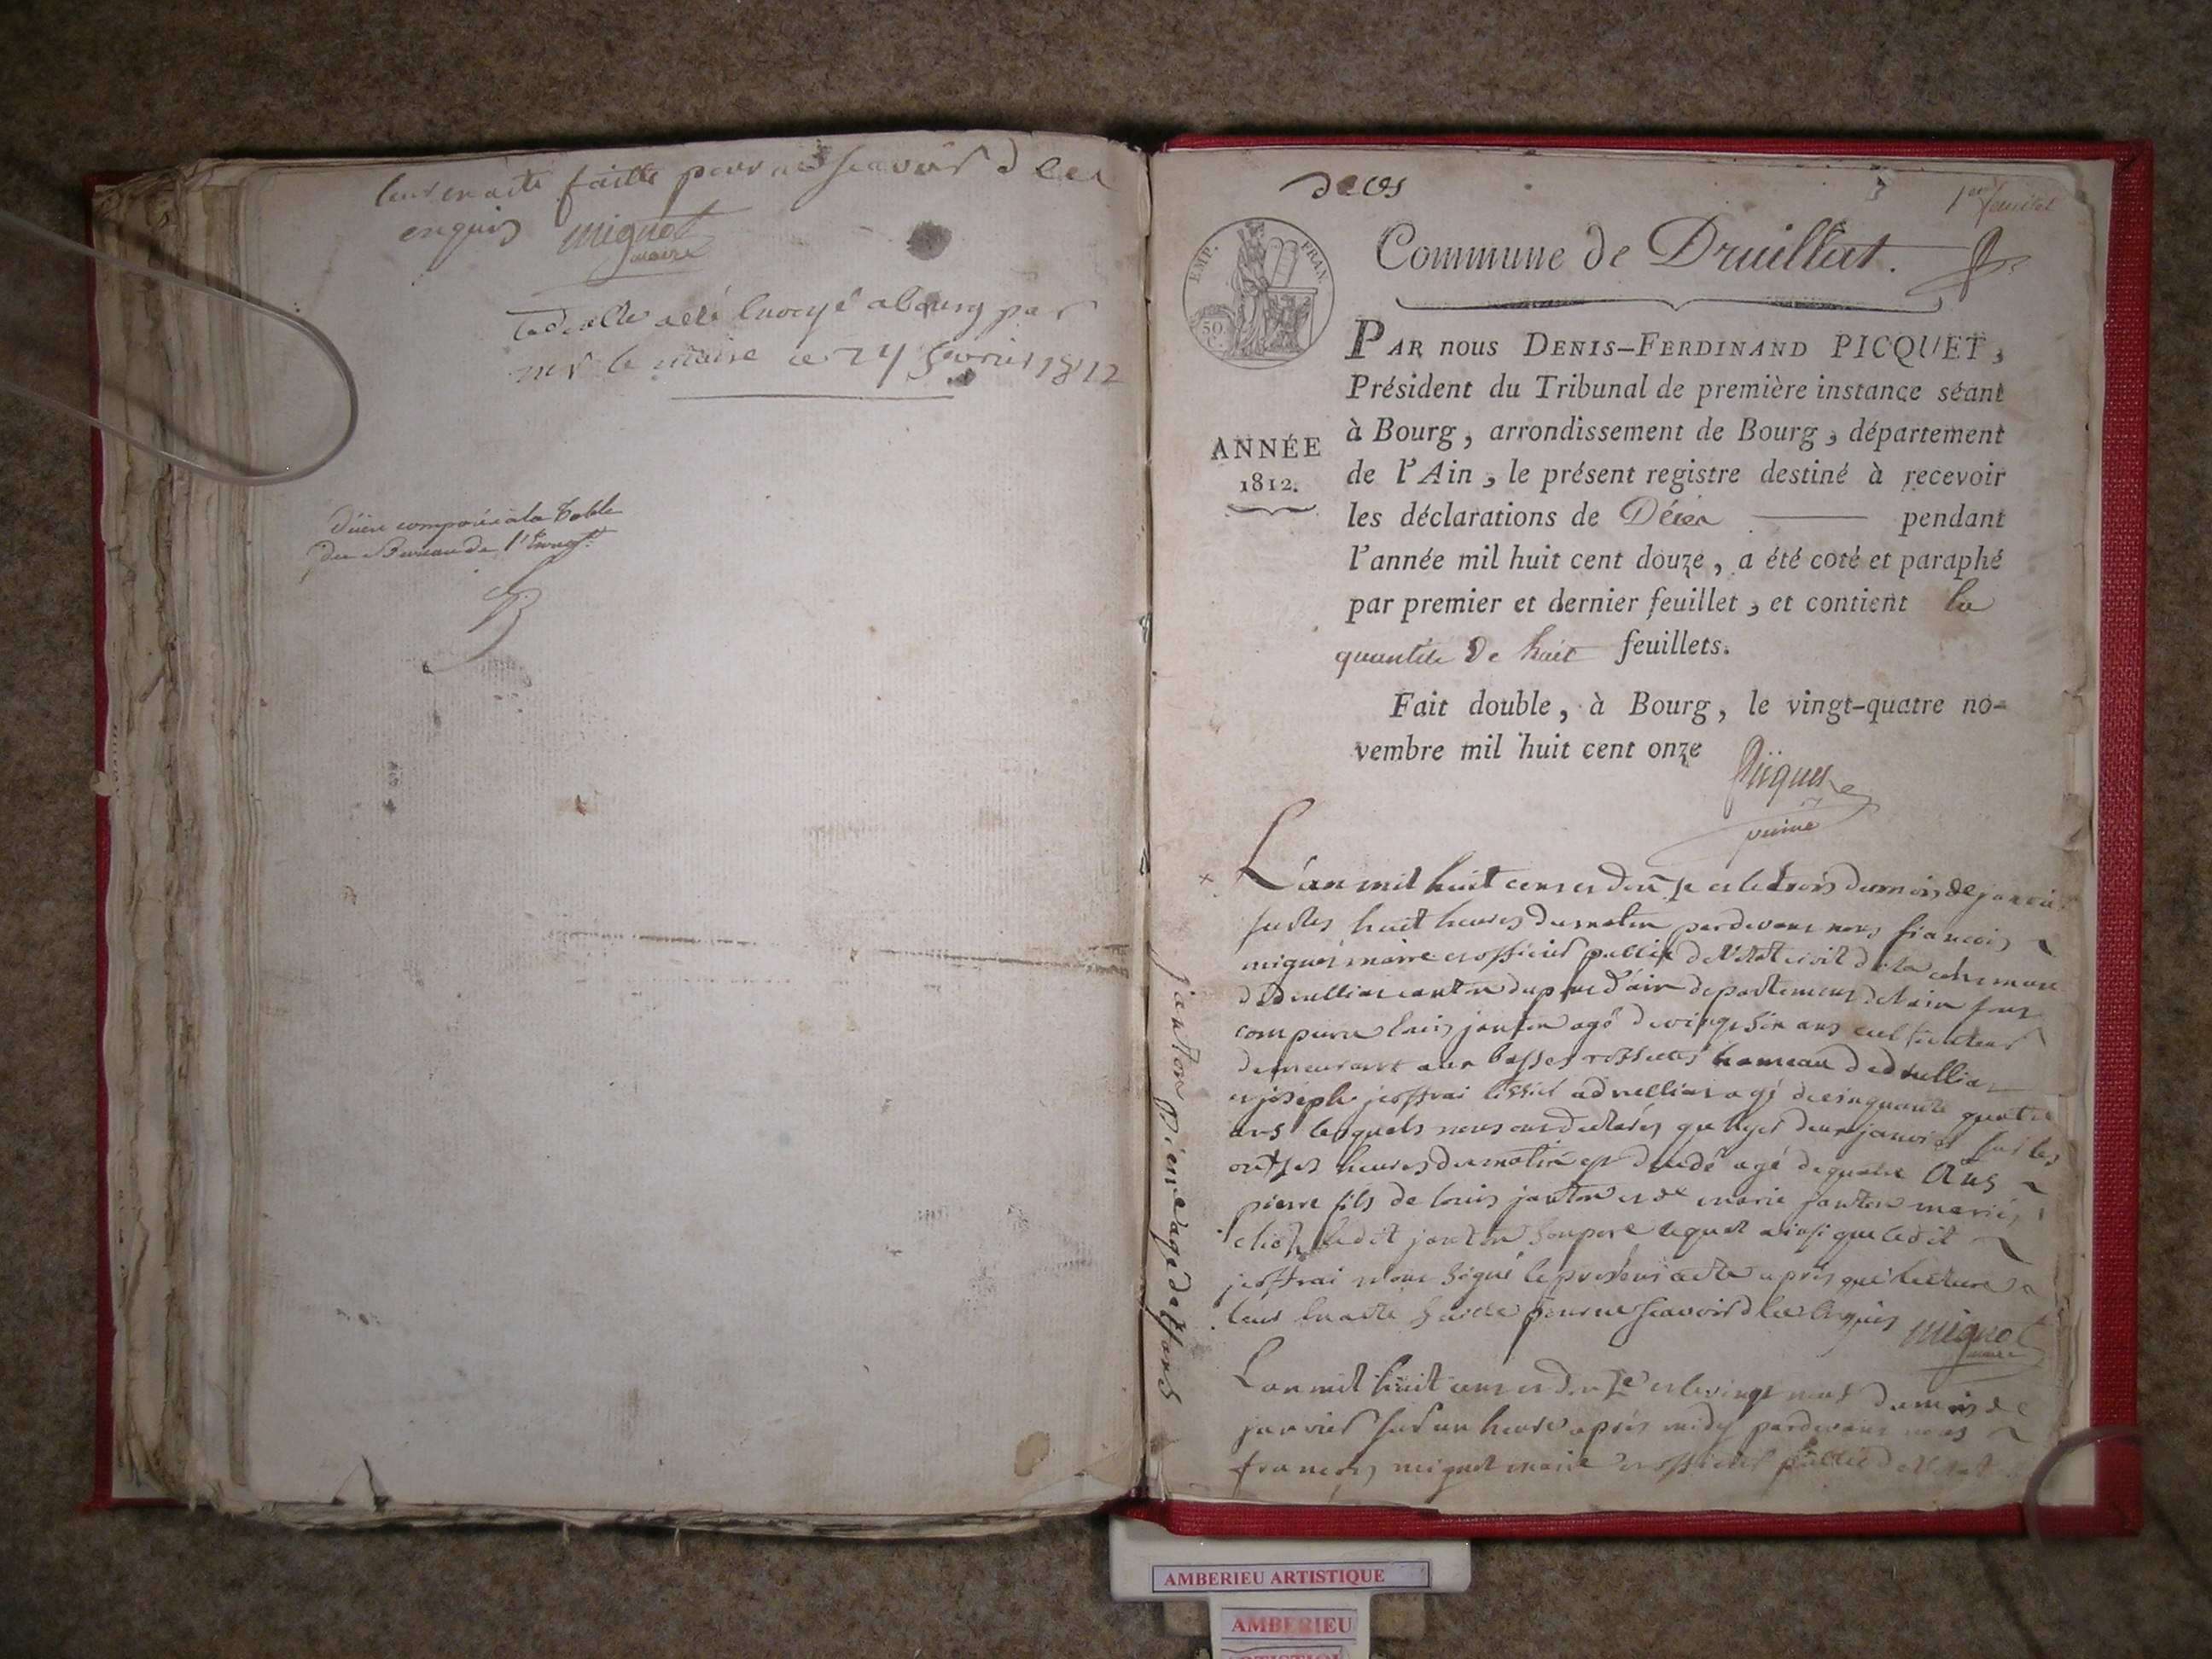 leur en acte faitte pour ne scavoir de ce
enquis mignot
maire
le double a été envoyé a bourg par
mr le maire le 24 fevrier 1812
du Bureau de l'
B
deces
1er feuillet
EMP. FRAN.
50 C.
Commune de Druillat.
PAR nous DENIS-FERDINAND PICQUET,
Président du Tribunal de première instance séant
à Bourg, arrondissement de Bourg, département
ANNÉE
1812.
de l'Ain, le présent registre destiné à recevoir
les déclarations de Décès pendant
l'année mil huit cent douze, a été coté et paraphé
par premier et dernier feuillet, et contient la
quantité de huit feuillets.
Fait double, à Bourg, le vingt-quatre no-
vembre mil huit cent onze
Picquet
L'an mil huit cens et douze et le trois du mois de janvier
sur les huit heures du matin pardevant nous francois
mignot maire et officier public de l'état civil de la commune
de druillat canton du pont d'ain departement de l'ain sont
comparu louis janton agé de vingt six ans cultivateur
demeurant aux basses rossettes hameau de druillat
et joseph joffrai tissier a druillat agé de cinquante quatre
ans lesquels nous ont declarés que hyer deux janvier sur les
onzes heures du matin est decedé agé de quatre ans
pierre fils de louis janton et de marie janton mariés
chez ledit janton son pere lequel ainsi que ledit
joffrai n'ont signé le present acte après que lecture
leur en a été faitte pour ne scavoir de ce enquis mignot
maire
janton Pierre agé de 4 ans
L'an mil huit cens et douze et le vingt neuf du mois de
janvier sur un heure après midy pardevant nous
francois mignot maire et officier public de l'état
AMBERIEU ARTISTIQUE
AMBERIEU
ARTISTIQUE